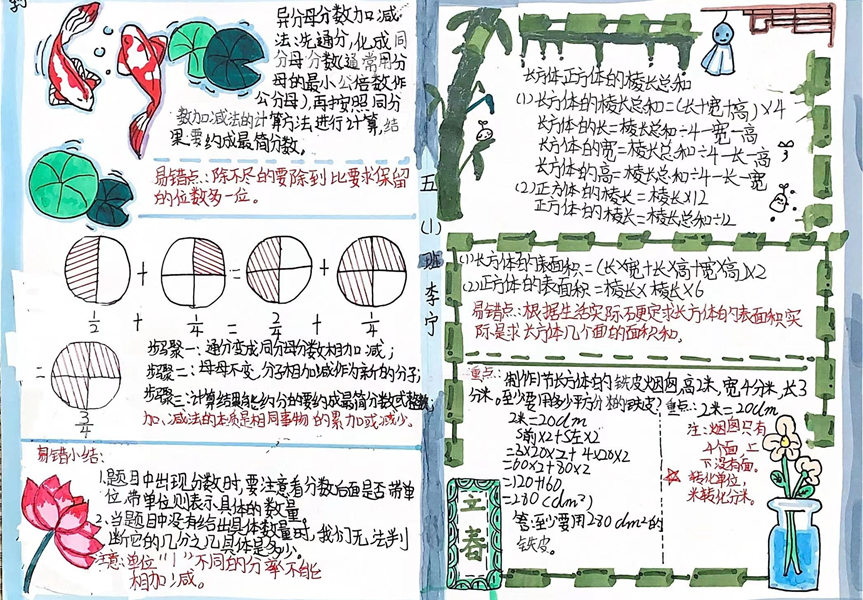 异分母分数加减
法:先通分,化成同
分母分数(通常用分
母的最小公倍数作
公分母),再按照同分
数加减法的计算方法进行计算,结
果要约成最简分数。
易错点:除不尽的要除到比要求保留
的位数多一位。
+ = +
1/2 + 1/4 = 2/4 + 1/4
=
3/4
步骤一:通分变成同分母分数相加减;
步骤二:母母不变,分子相加减作为新的分子;
步骤三:计算结果能约分的要约成最简分数或整数
加、减法的本质是相同事物的累加或减少。
易错小结:
1.题目中出现分数时,要注意看分数后面是否带单
位,带单位则表示具体的数量。
2.当题目中没有给出具体数量时,我们无法判
断它的几分之几具体是多少。
注意:单位"1"不同的分率不能
相加减。
五(1)班李宁
长方体正方体的棱长总和
(1)长方体的棱长总和=(长+宽+高)×4
长方体的长=棱长总和÷4-宽-高
长方体的宽=棱长总和÷4-长-高
长方体的高=棱长总和÷4-长-宽
(2)正方体的棱长=棱长×12
正方体的棱长=棱长总和÷12
(1)长方体的表面积=(长×宽+长×高+宽×高)×2
(2)正方体的表面积=棱长×棱长×6
易错点:根据生活实际不更定求长方体的表面积,实
际是求长方体几个面的面积和。
重点:制作1节长方体的铁皮烟囱,高2米,宽4分米,长3
分米。至少要用多少平方分米的铁皮?重点:2米=20dm
2米=20dm
S前×2+S左×2
=3×20×2+4×20×2
=60×2+80×2
=120+160
=280(dm²)
答:至少要用280dm²的
铁皮。
注:烟囱只有
4个面,上
下没有面。
☆转化单位,
米转化分米。
立春